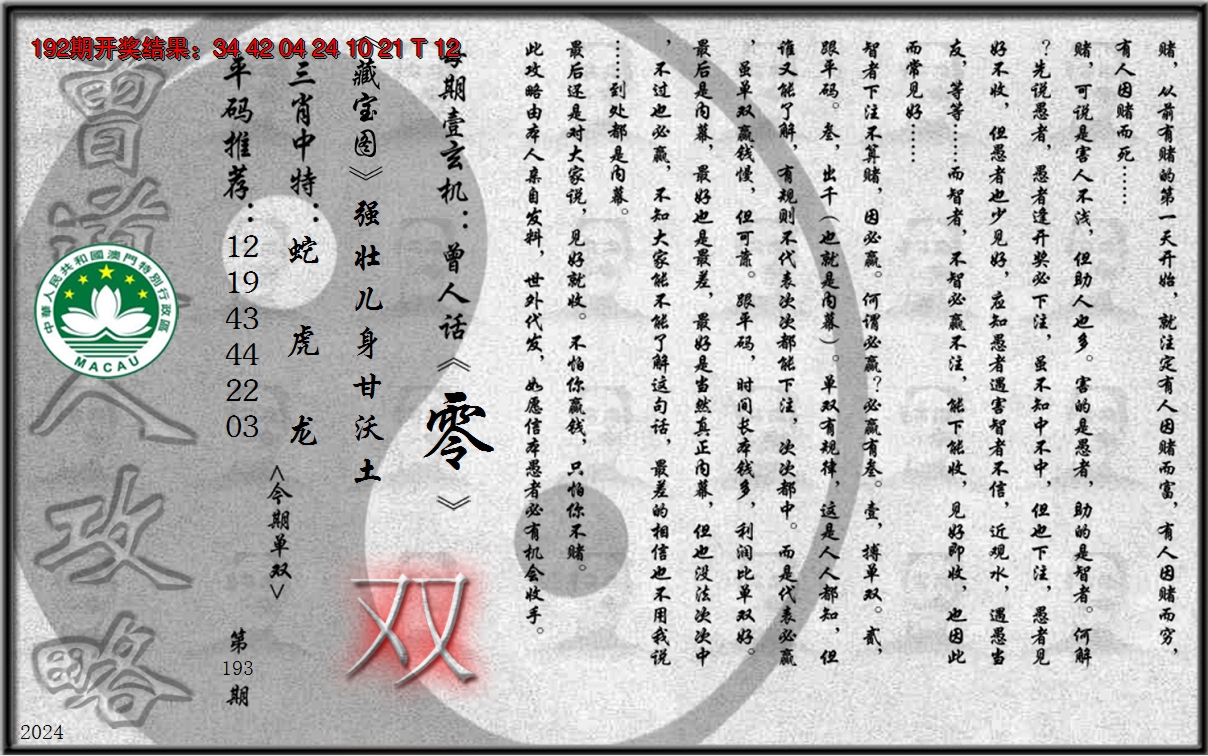 192期开奖结果：34 42 04 24 10 21 T 12
赌，从前有赌的第一天开始，就注定有人因赌而富，有人因赌而穷，
有人因赌而死……
赌，可说是害人不浅，但助人也多。害的是愚者，助的是智者。何解
？先说愚者，愚者逢开奖必下注，虽不知中不中，但也下注，愚者见
好不收，但愚者也少见好，应知愚者遇害智者不信，近观水，遇愚当
友，等等……而智者，不智必赢不注，能下能收，见好即收，也因此
而常见好……
智者下注不算赌，因必赢。何谓必赢？必赢有叁。壹，搏单双。贰，
跟平码。叁，出千（也就是内幕）。单双有规律，这是人人都知，但
谁又能了解，有规则不代表次次都能下注，次次都中。而是代表必赢
，虽单双赢钱慢，但可靠。跟平码，时间长本钱多，利润比单双好。
最后是内幕，最好也是最差，最好是当然真正内幕，但也没法次次中
，不过也必赢，不知大家能不能了解这句话，最差的相信也不用我说
……到处都是内幕。
最后还是对大家说，见好就收。不怕你赢钱，只怕你不赌。
此攻略由本人亲自发料，世外代发，如愿信本愚者必有机会收手。
每期壹玄机：曾人话《零》
《藏宝图》强壮儿身甘沃土
三肖中特：蛇 虎 龙
平码推荐：
12
19
43
44
22
03
<今期单双>
双
第
193
期
曾道人攻略
中華人民共和國澳門特別行政區
MACAU
2024